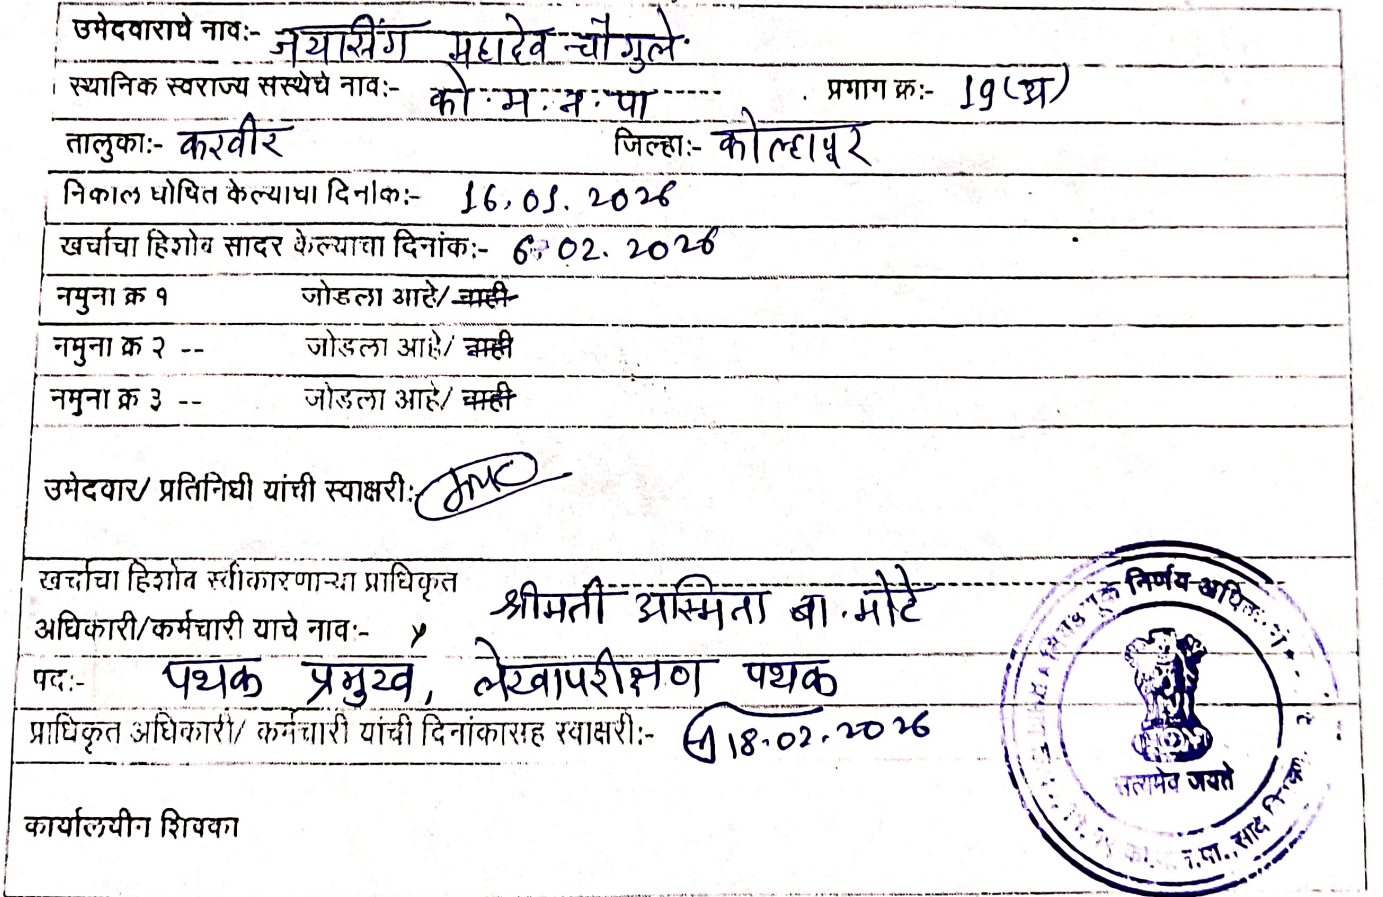 उमेदवाराचे नाव:- जयसिंग महादेव चौगुले
स्थानिक स्वराज्य संस्थेचे नाव:- को.म.न.पा प्रभाग क्र:- 19(अ)
तालुका:- करवीर जिल्हा:- कोल्हापूर
निकाल घोषित केल्याचा दिनांक:- 16.01.2026
खर्चाचा हिशोब सादर केल्याचा दिनांक:- 6.02.2026
नमुना क्र १ जोडला आहे/ नाही
नमुना क्र २ -- जोडला आहे/ नाही
नमुना क्र ३ -- जोडला आहे/ नाही
उमेदवार/ प्रतिनिधी यांची स्वाक्षरी:
खर्चाचा हिशोब स्वीकारणाऱ्या प्राधिकृत
अधिकारी/कर्मचारी याचे नाव:- श्रीमती अस्मिता बा. मोटे
पद:- पथक प्रमुख, लेखापरीक्षण पथक
प्राधिकृत अधिकारी/ कर्मचारी यांची दिनांकासह स्वाक्षरी:- 18.02.2026
निर्णय
सत्यमेव जयते
कार्यालयीन शिक्का